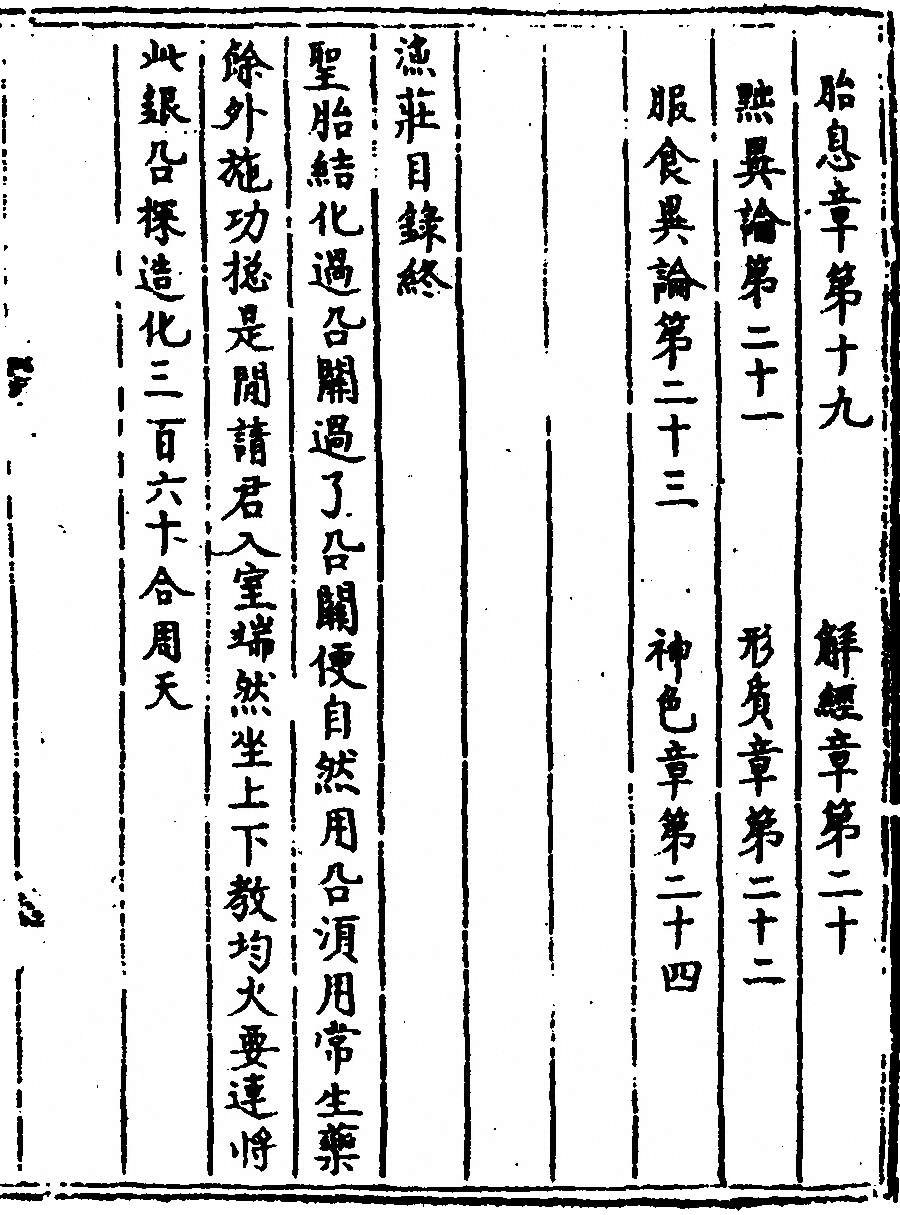 胎息章第十九　解經章第二十
黜異論第二十一　形質章第二十二
服食異論第二十三　神色章第二十四
漁莊目錄終
聖胎結化過㕣關過了㕣關便自然用㕣湏用常生藥
餘外施功捴是閒請君入室端然坐上下教均火要連將
此銀㕣探造化三百六十合周天